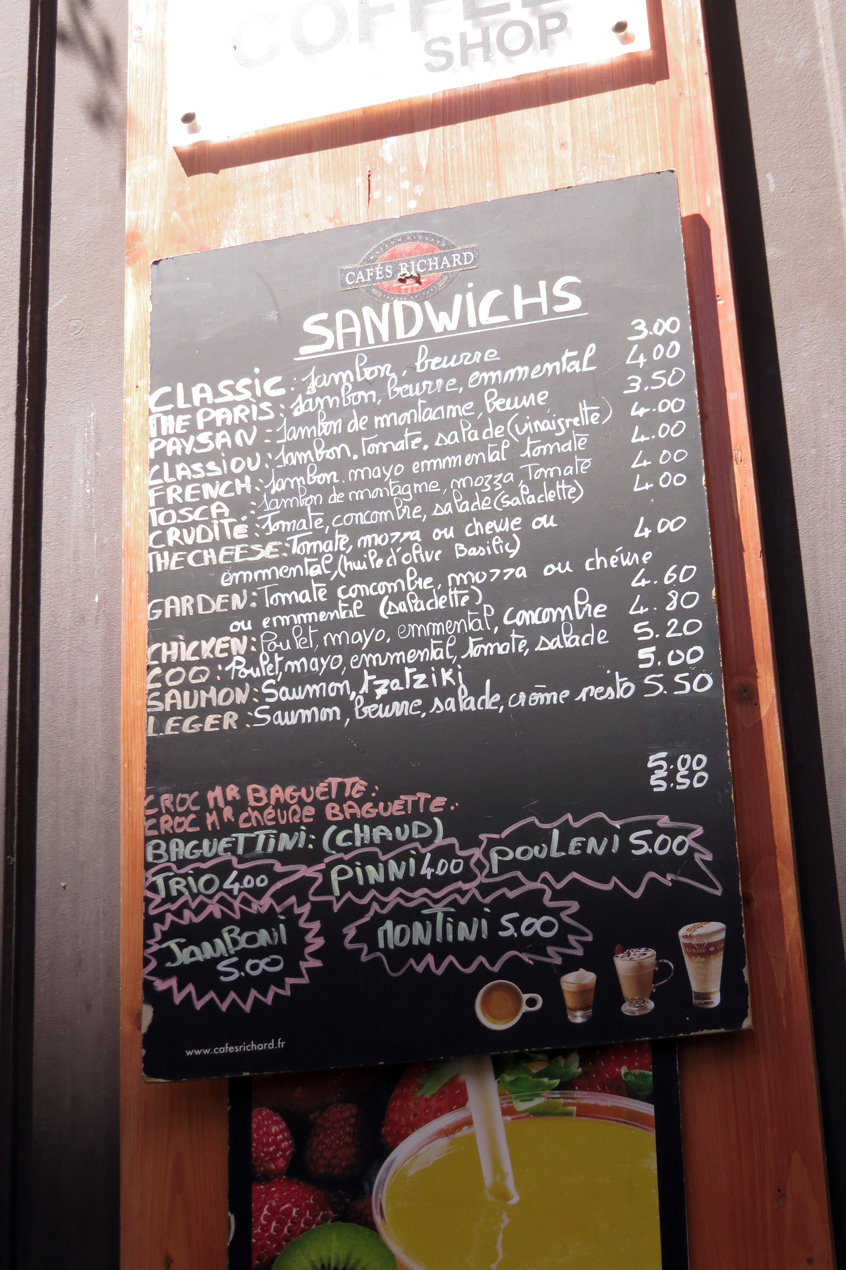 COFFEE
SHOP
CAFÉS RICHARD
SANDWICHS
CLASSIC : Jambon, beurre 3.00
THE PARIS : Jambon, beurre, emmental 4.00
PAYSAN : Jambon de montagne, beurre 3.50
CLASSIOU : Jambon, tomate, salade (vinaigrette) 4.00
FRENCH : Jambon mayo emmental tomate 4.00
TOSCA : Jambon de montagne, mozza, Tomate 4.00
CRUDITE : Tomate, concombre, salade (saladette) 4.00
THE CHEESE : Tomate, mozza ou chèvre ou 4.00
emmental, (huile d'olive Basilic)
GARDEN : Tomate concombre, mozza ou chèvre
ou emmental (saladette) 4.60
CHICKEN : Poulet, mayo, emmental, concombre 4.80
COQ : Poulet, mayo, emmental, tomate, salade 5.20
SAUMON : Saumon, tzatziki 5.00
LEGER : Saumon, beurre, salade, crème resto 5.50
CROC Mr BAGUETTE : 5.00
CROC Mr chévre BAGUETTE : 5.50
BAGUETTINI : (CHAUD)
TRIO 4.00 PINNI 4.00 POULENI 5.00
JAMBONI 5.00 MONTINI 5.00
www.cafesrichard.fr